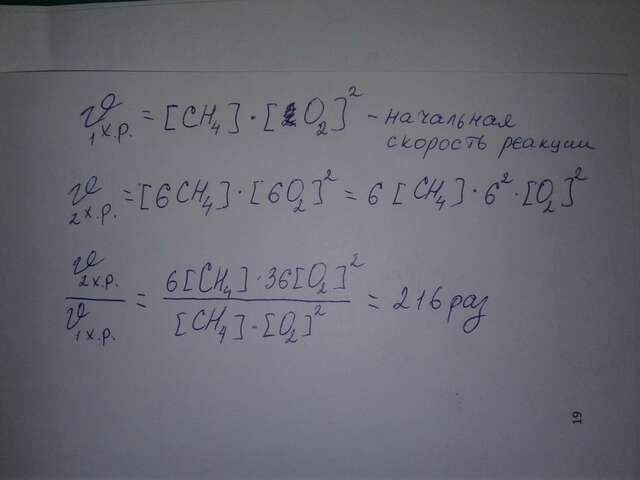 υ₁ х.р. = [CH₄] · [O₂]² – начальная
скорость реакции
υ₂ х.р. = [6CH₄] · [6O₂]² = 6[CH₄] · 6² · [O₂]²
υ₂ х.р. / υ₁ х.р. = 6[CH₄] · 36[O₂]² / [CH₄] · [O₂]² = 216 раз
19